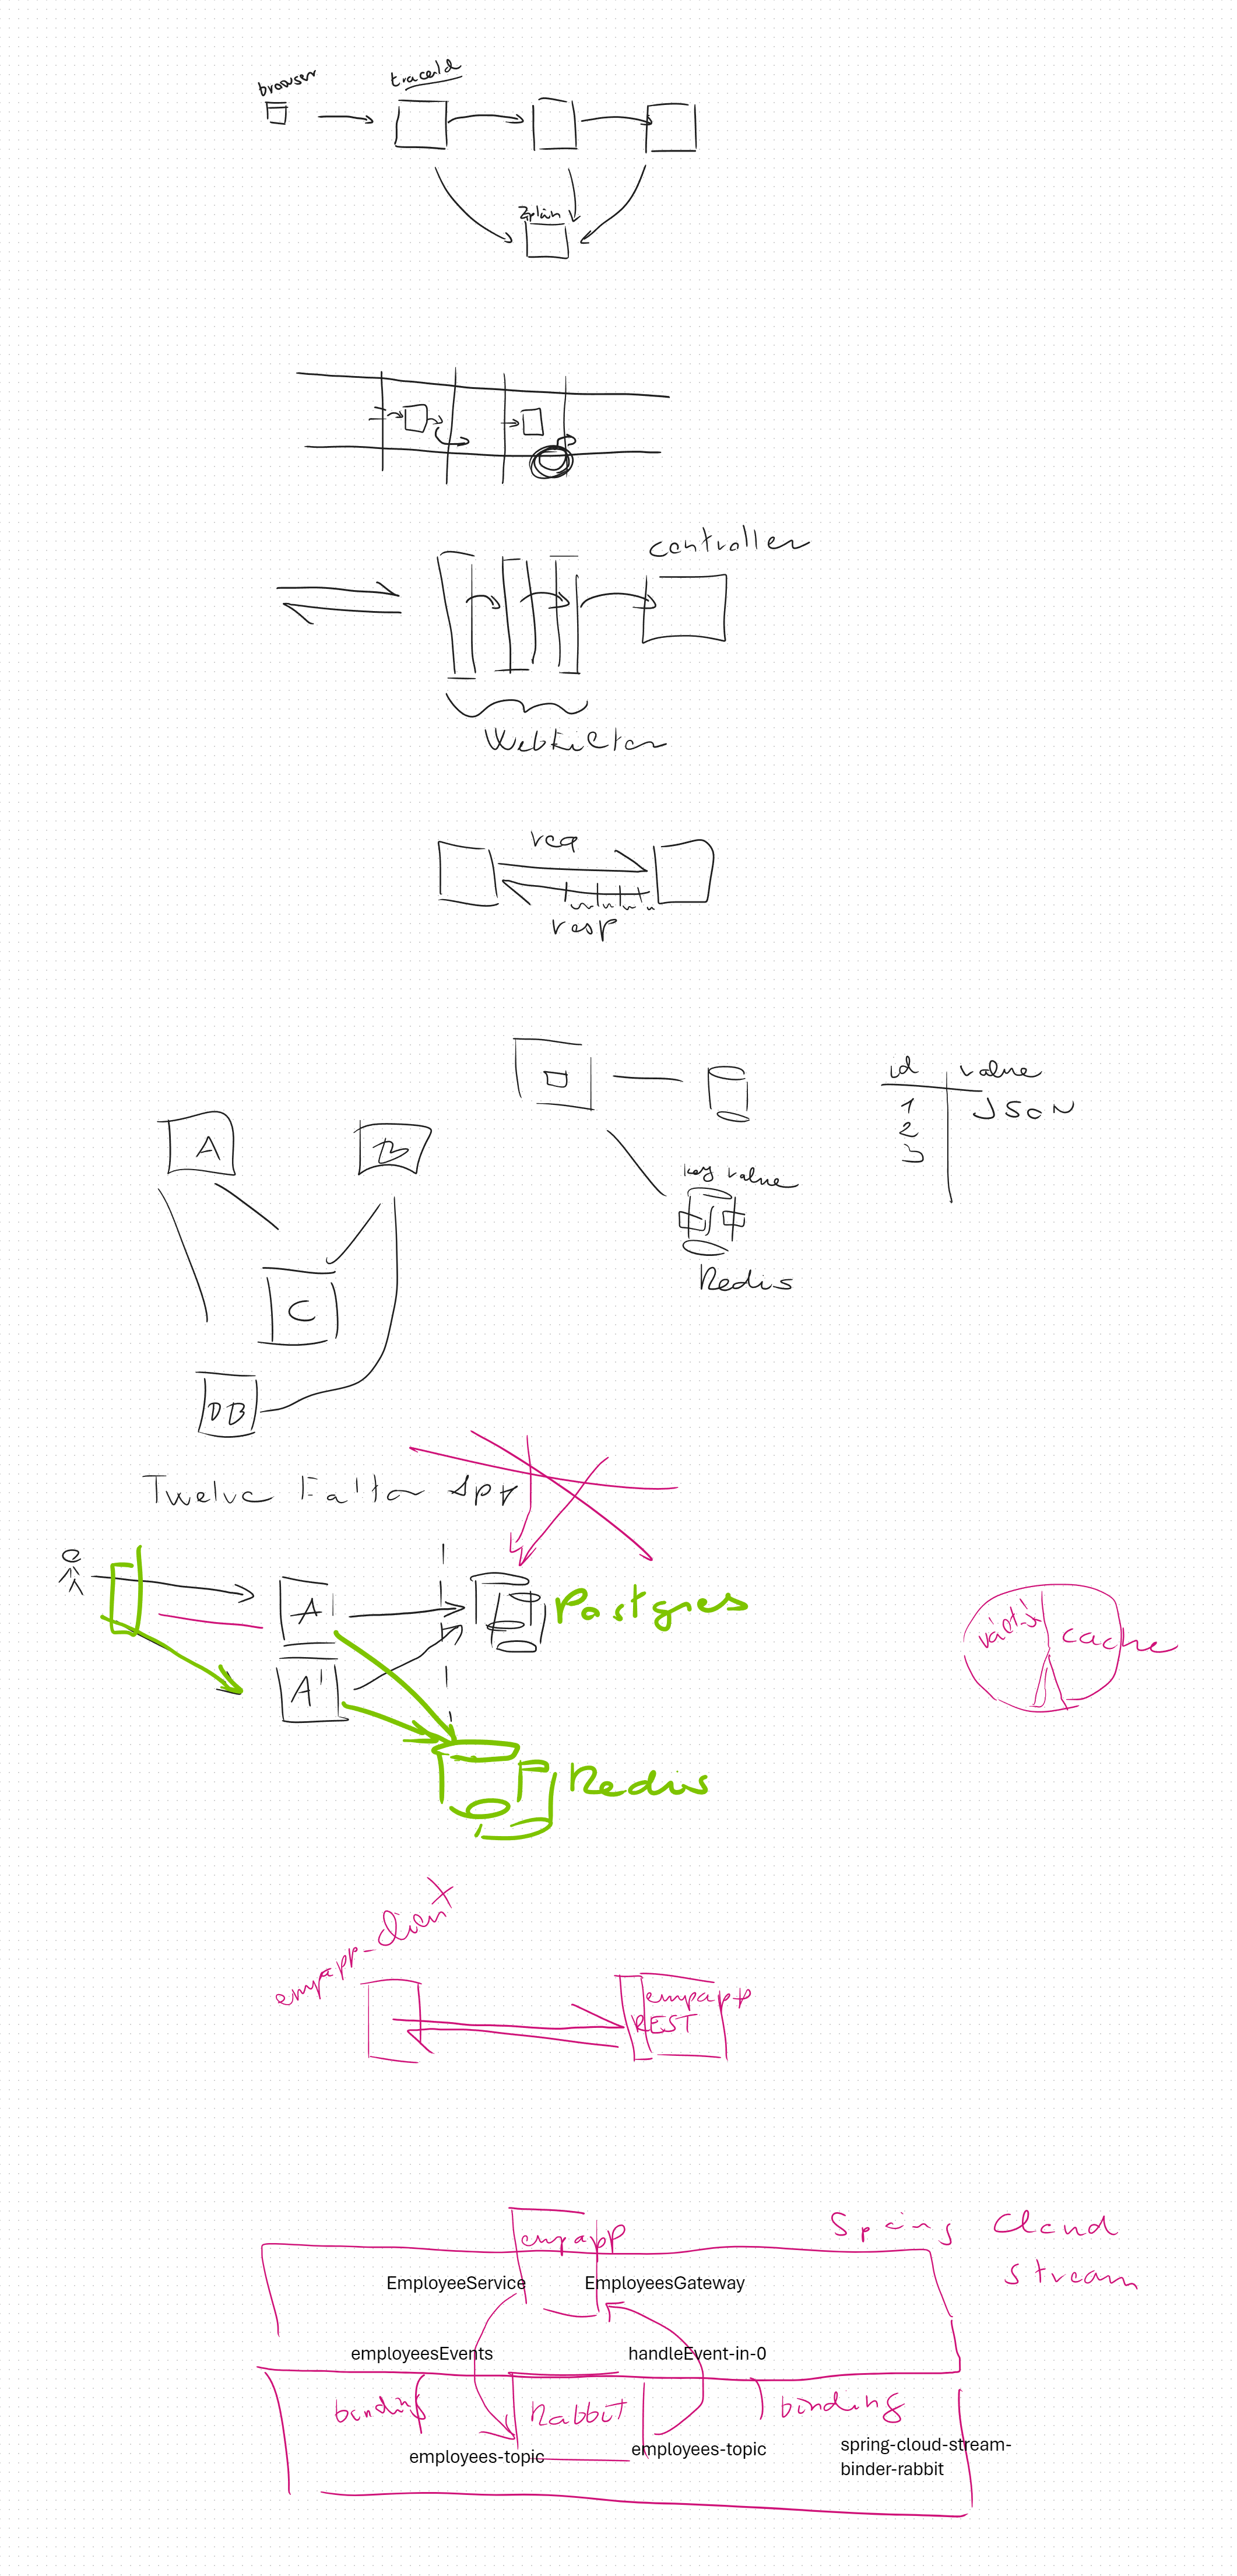 browser
traceId
Zipkin
controller
WebFilter
req
resp
id value
1 JSON
2
3
A
B
key value
Redis
C
DB
Twelve Factor App
A
Postgres
A'
cache
Redis
empapp-client
empapp
REST
Spring Cloud
Stream
empapp
EmployeeService
EmployeesGateway
employeesEvents
handleEvent-in-0
binding
Rabbit
binding
employees-topic
employees-topic
spring-cloud-stream-
binder-rabbit